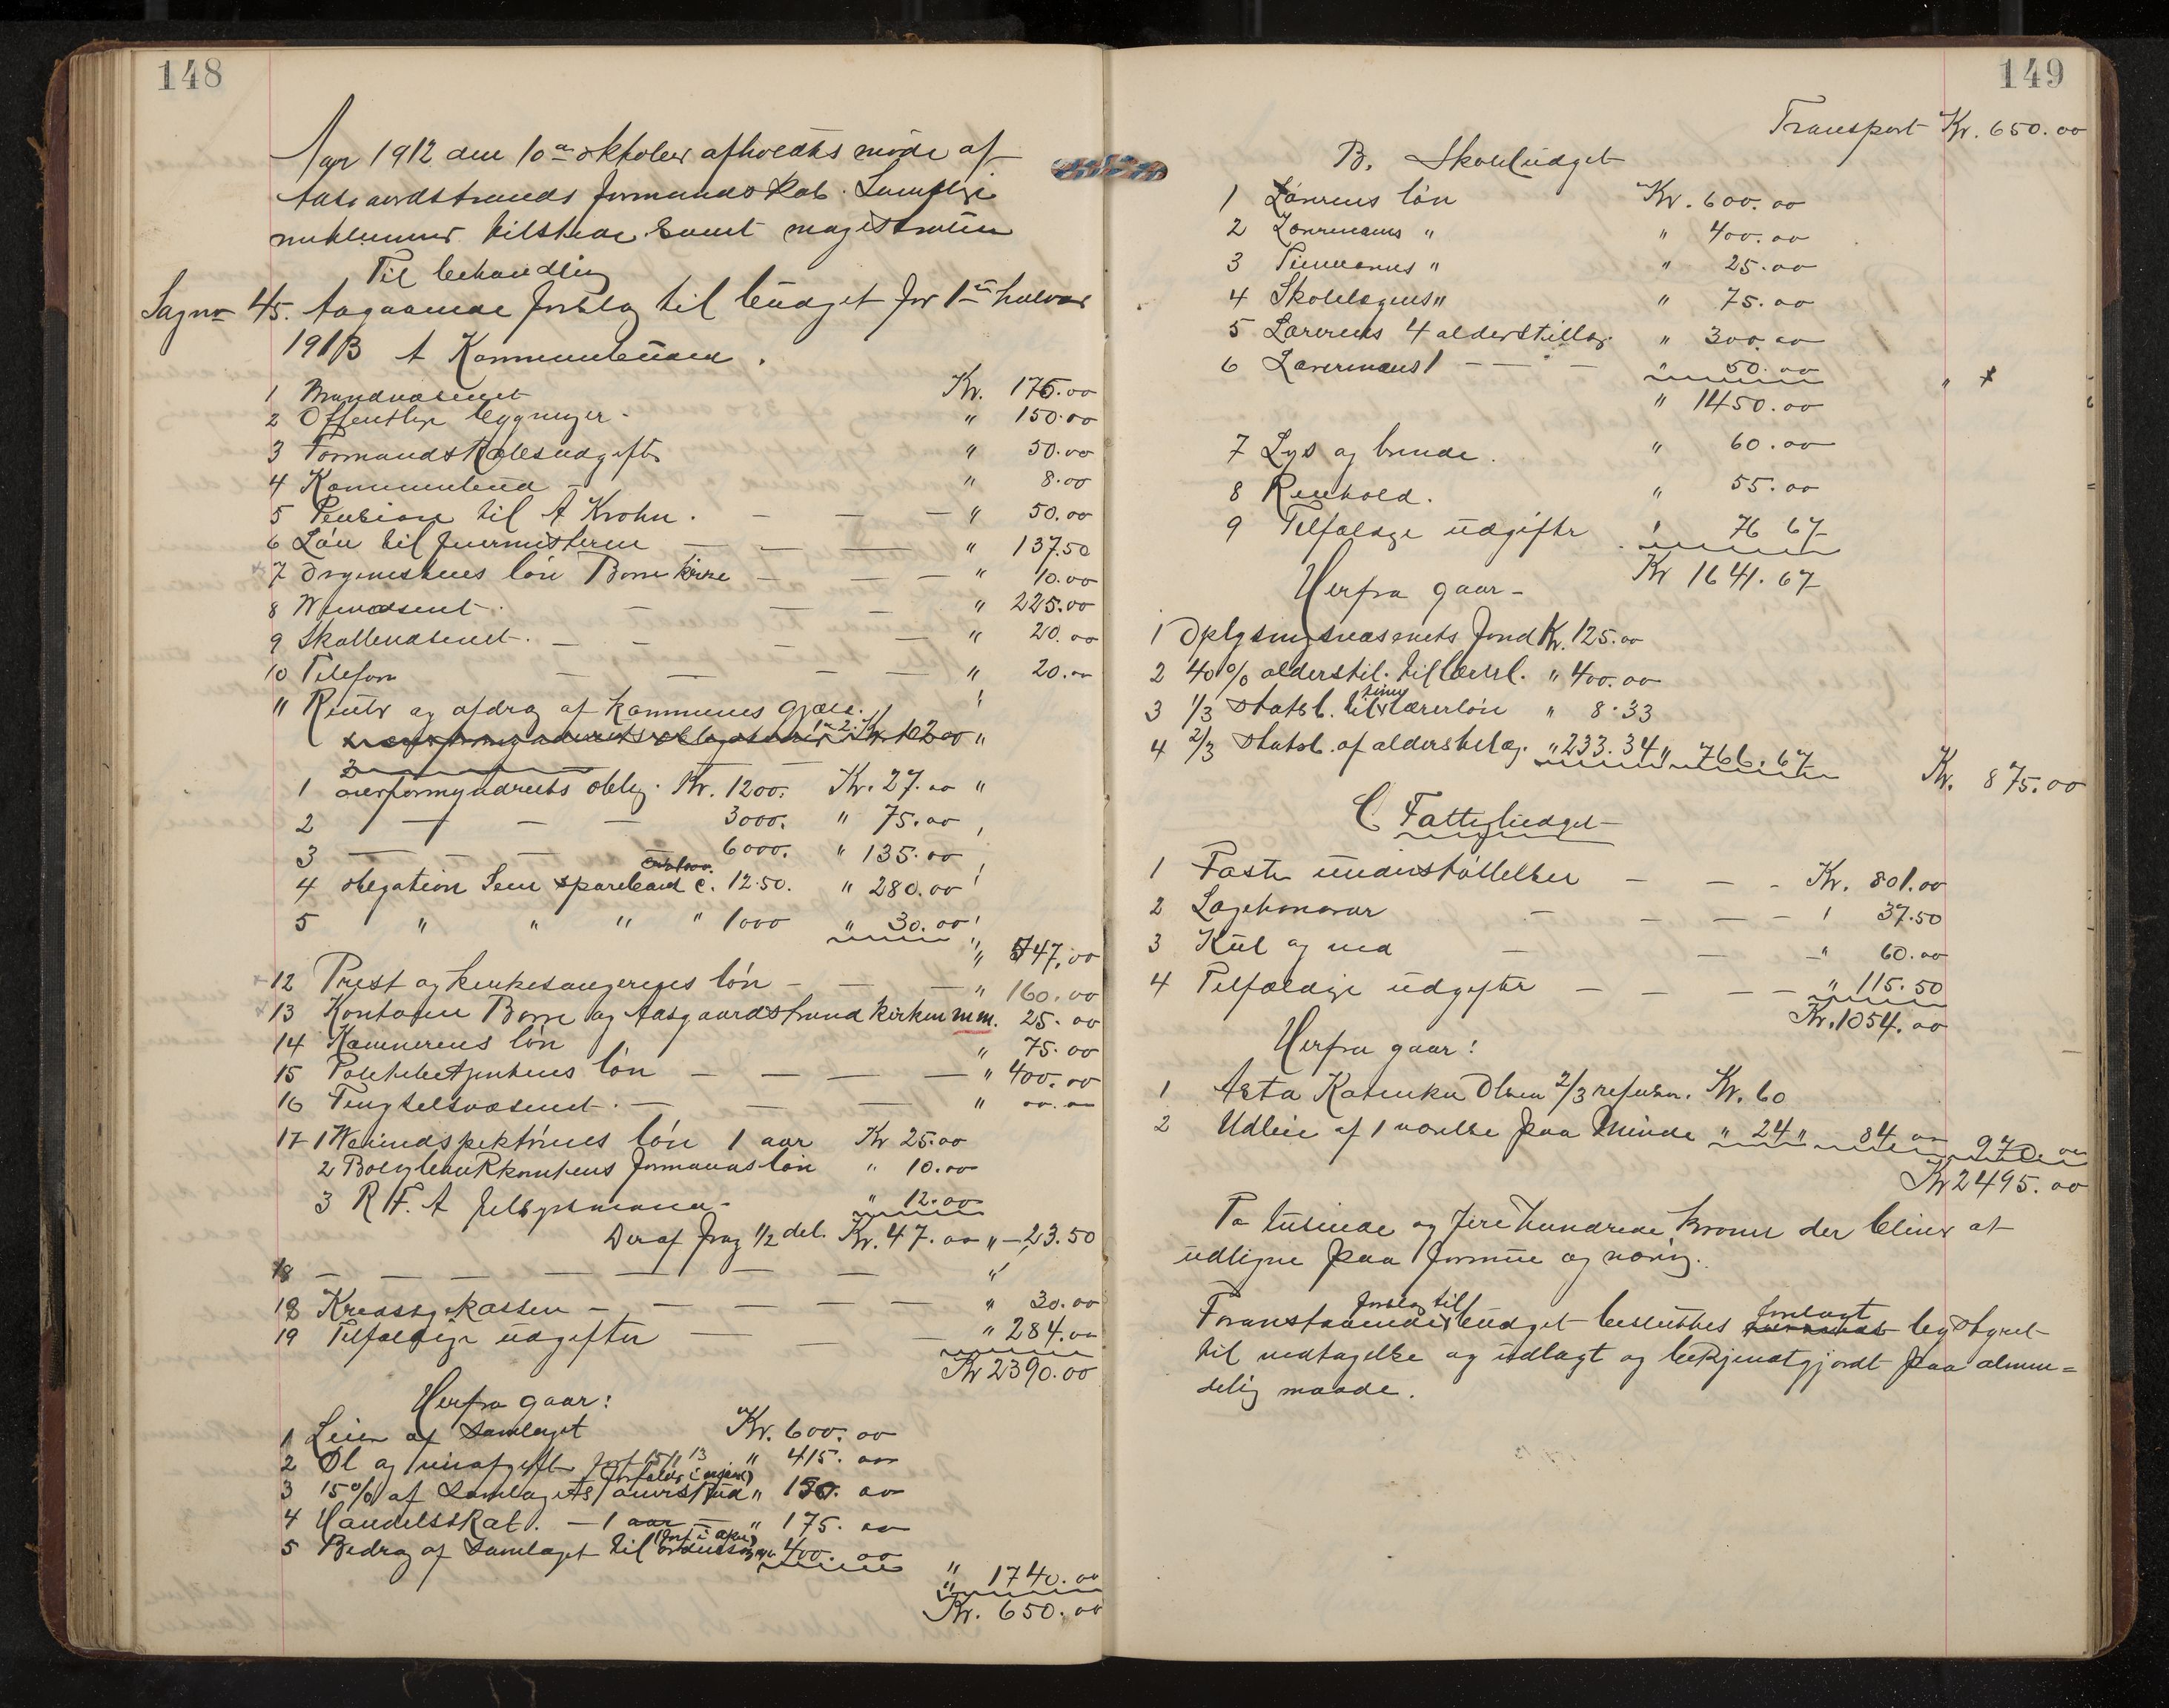 148
Aar 1912 den 10de oktober afholdtes møde af
Aasgaardstrands formandskab. Samtlige
medlemmer tilstede samt magistraten
Til behandling
Sagno 45. Angaaende forslag til budget for 1ste halvaar
1913 A Kommunebudget.
1 Brandvæsenet Kr. 175.00
2 Offentlige bygninger - " 150.00
3 Formandskabsudgifter " 50.00
4 Kommunebud - " 8.00
5 Pension til A Krohn. — — — " 50.00
6 Løn til jordmoderen — — — " 137.50
7 Organistens løn Borre kirke — — — " 10.00
8 Veivæsenet. — — — " 225.00
9 Skattevæsenet. — — — — " 20.00
10 Telefon — — — — " 20.00
11 Renter og afdrag af kommunens gjæld. "
1 overformynderiets oblig. Kr. 1200. Kr. 27.00 "
2 — — — 3000. " 75.00 "
3 — — — — 6000. " 135.00 "
4 obligation Sem sparebank c. 12.50. " 280.00 "
5 " " " " 1000 " 30.00 "
" 547.00
12 Prest og kirkesangerens løn - — — " 160.00
13 Kontoen Borre og Aasgaardstrand kirker m.m. 25.00
14 Kæmnerens løn " 75.00
15 Politibetjentens løn — — — — " 400.00
16 Fengselsvæsenet. — — — " 00.00
17 1 Veiinspektørens løn 1 aar Kr 25.00
2 formannsløn " 10.00
3 R. F. A " 12.00
Deraf frag 1/2 del. Kr. 47.00 " — 23.50
18 — — — — — — — "
18 Kredssygekassen - — — — — — " 30.00
19 Tilfældige udgifter — — — " 284.00
Kr 2390.00
Herfra gaar:
1 Leien af Samlaget Kr. 600.00
2 Øl og vinafgift forf 15/1 13 " 415.00
3 15% af Samlagets overskud " 150.00
4 Handelsskat. — 1 aar — " 175.00
5 Bidrag af Samlaget til 400.00
" 1740.00
Kr. 650.00
149
Transport Kr. 650.00
B. Skolebudget
1 Lærerens løn Kr. 600.00
2 Lærerindens " " 400.00
3 Timelærernes " " 25.00
4 Skolelægens " " 75.00
5 Lærerens 4 alderstillæg. " 300.00
6 Lærerindens 1 — — — " 50.00
" 1450.00
7 Lys og brende. " 60.00
8 Renhold. " 55.00
9 Tilfældige udgifter " 76 67
Kr 1641.67
Herfra gaar -
1 Oplysningsvæsenets fond Kr. 125.00
2 40% alderstil. til lærerl. " 400.00
3 1/3 statsb. til time lærerløn " 8.33
4 2/3 statsb. af alderstillæg. " 233.34 " 766.67
Kr. 875.00
C Fattigbudget
1 Faste understøttelser — — - Kr. 801.00
2 Lægehonorar — — — — " 37.50
3 Kul og ved — — — " 60.00
4 Tilfældige udgifter — — — — " 115.50
Kr. 1054.00
Herfra gaar:
1 Asta Katinka Olsen 2/3 refusion. Kr. 60
2 Udleie af 1 værelse paa Minde " 24 " 84 00 970.00
Kr 2495.00
To tusinde og fire hundrede kroner der bliver at
udligne paa formue og næring.
Foranstaaende forslag til budget besluttes forelagt bystyret
til vedtagelse og udlagt og bekjendtgjordt paa almin=
delig maade.